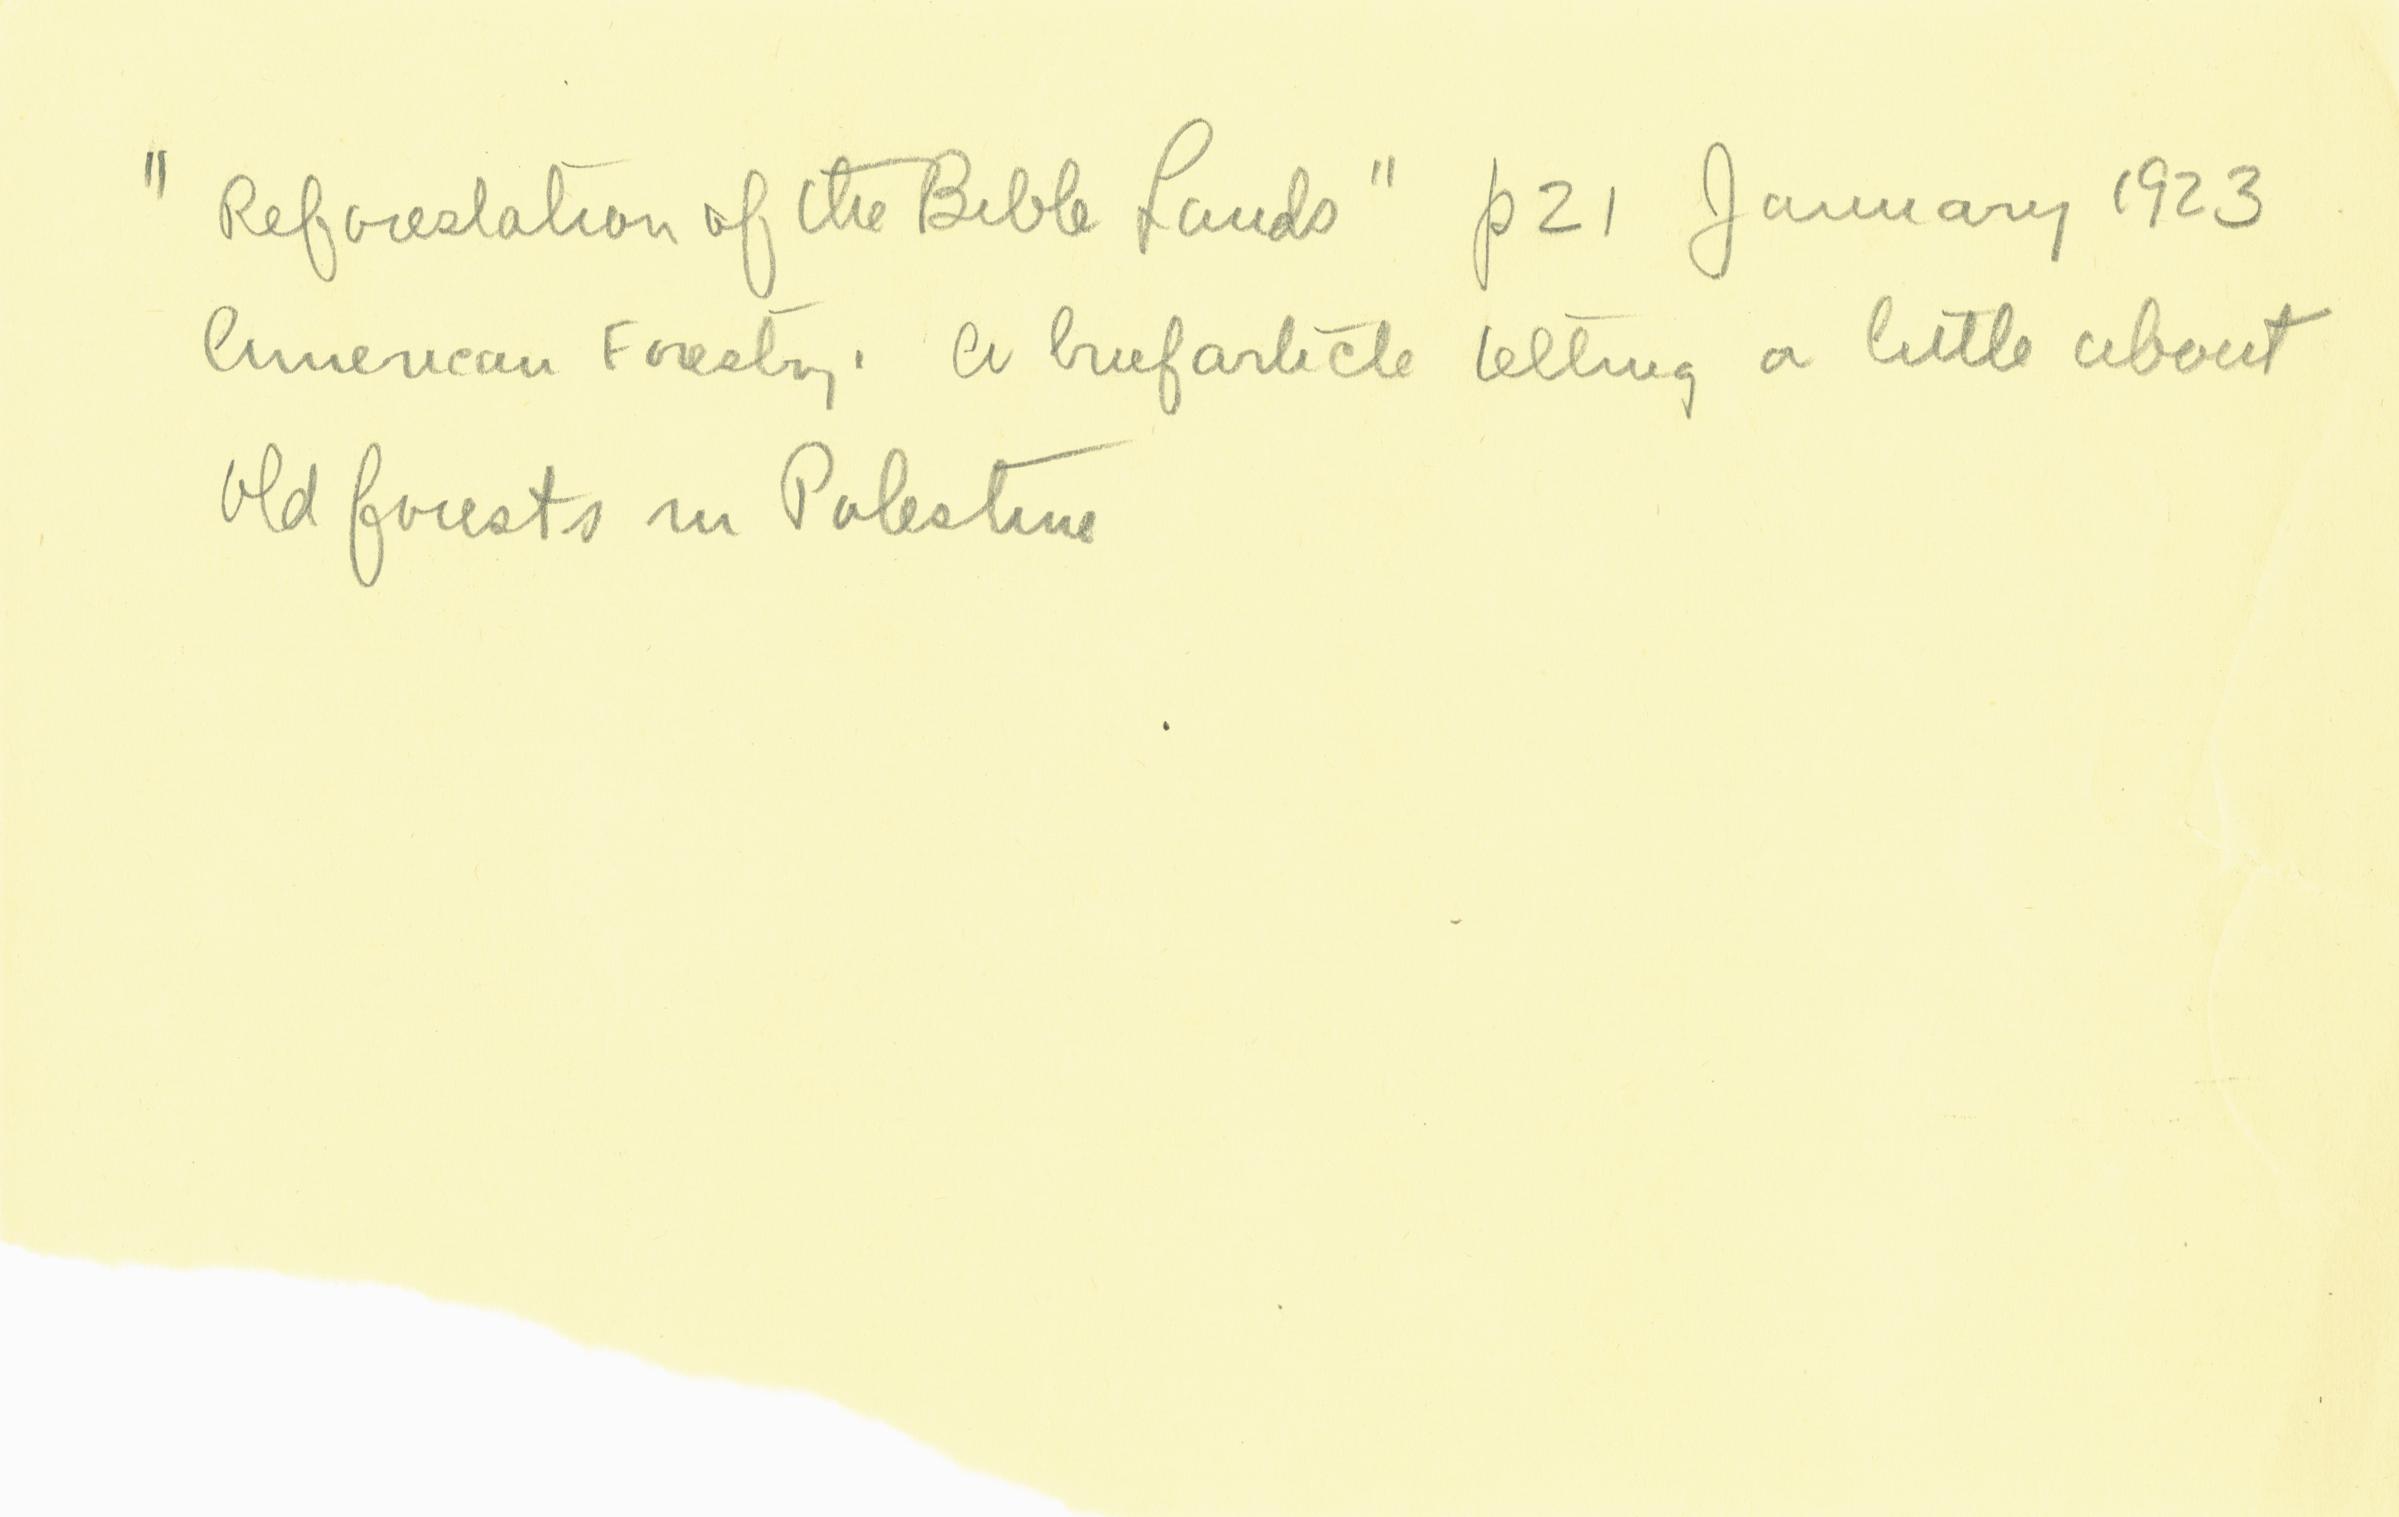 "Reforestation of the Bible Lands" p 21 January 1923
American Forestry. A brief article telling a little about
old forests in Palestine